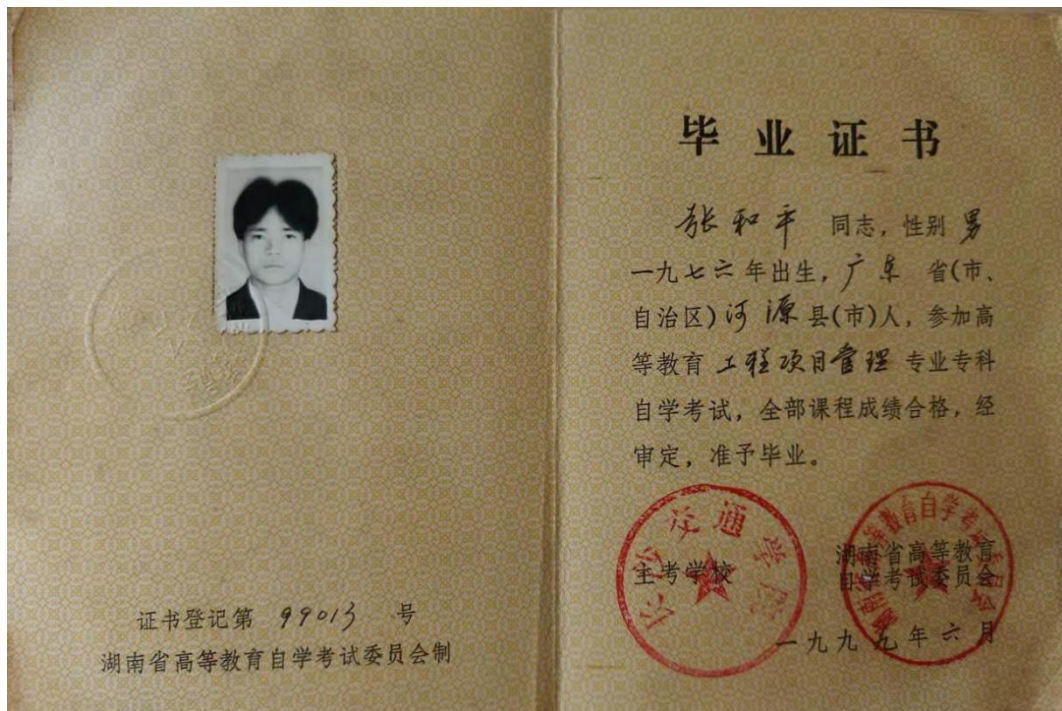 证书登记第 99013 号
湖南省高等教育自学考试委员会制
毕业证书
张和平 同志，性别 男
一九七六年出生，广东 省(市、
自治区)河源县(市)人，参加高
等教育 工程项目管理 专业专科
自学考试，全部课程成绩合格，经
审定，准予毕业。
长沙交通学院
主考学校
湖南省高等教育自学考试委员会
湖南省高等教育
自学考试委员会
一九九九年六月